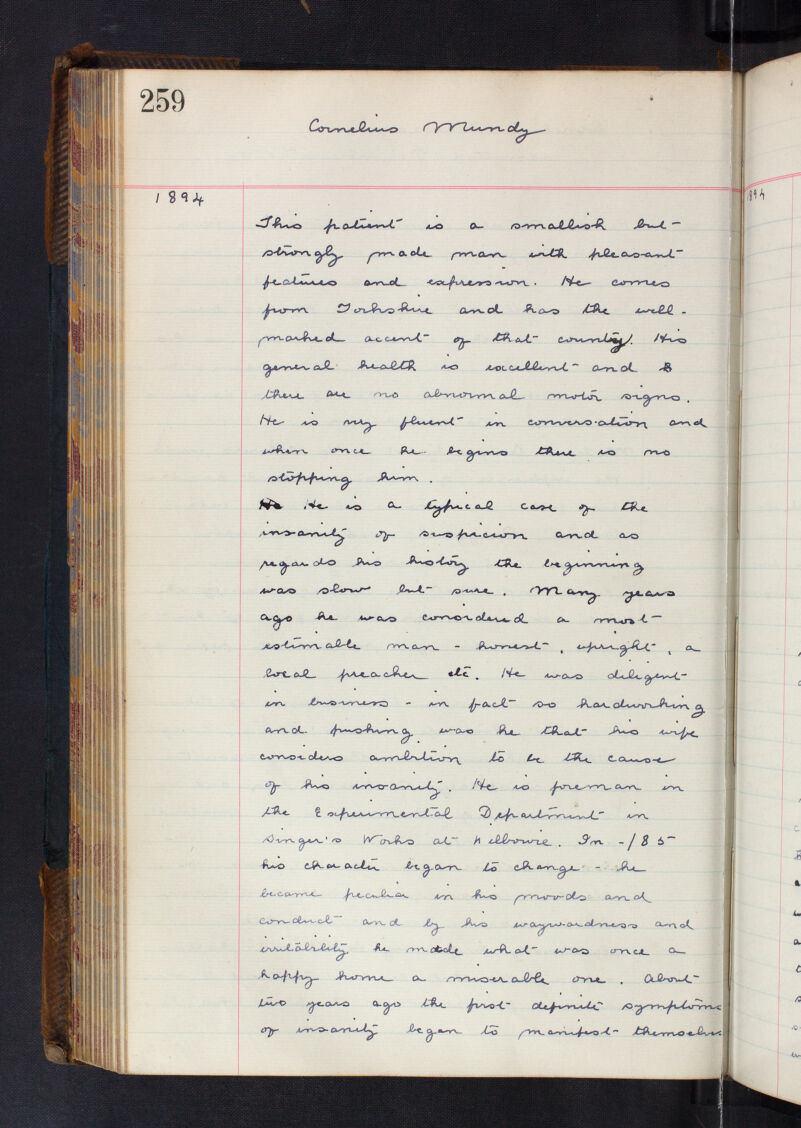 259
Cornelius Mundy
1894
This patient is a smallish but
strongly made man with pleasant
features and expression. He comes
from Yorkshire and has the well-
marked accent of that county. His
general health is excellent and
there are no abnormal motor signs.
He is very fluent in conversation and
when once he begins there is no
stopping him.
He He is a typical case of the
insanity of suspicion and as
regards his history the beginning
was slow but sure. Many years
ago he was considered a most
estimable man - honest, upright, a
local preacher etc. He was diligent
in business - in fact so hardworking
and pushing was he that his wife
considers ambition to be the cause
of his insanity. He is foreman in
the Experimental Department in
Singer's Works at Kilbowie. In -/85
his character began to change - he
became peculiar in his moods and
conduct and by his waywardness and
irritability he made what was once a
happy home a miserable one. About
two years ago the first definite symptoms
of insanity began to manifest themselves
894